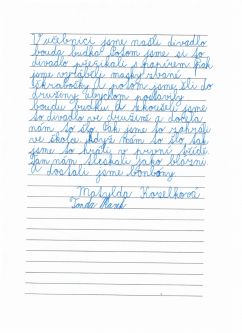 V učebnici jsme našli divadlo
bouda budka. Potom jsme si to
divadlo přepikali s papírem. Pak
jsme vyráběli masky zvané
škrabošky. A potom jsme šli do
družiny abychom postavily
boudu budku. A zkoušeli jsme
to divadlo ve družině a docela
nám to šlo. Tak jsme to zahráli
ve školce. Když nám to šlo tak
jsme to hráli v první třídě.
Tam nám tleskali jako blázni
a dostali jsme bonbony.
Matylda Koselková